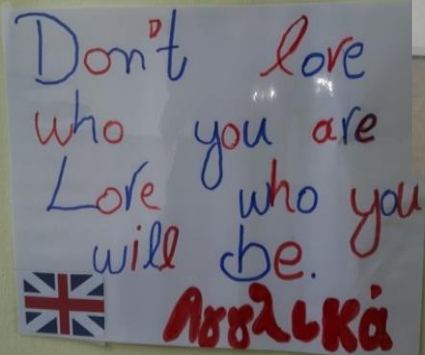 Don't love
who you are
Love who you
will be.
Αγγλικά